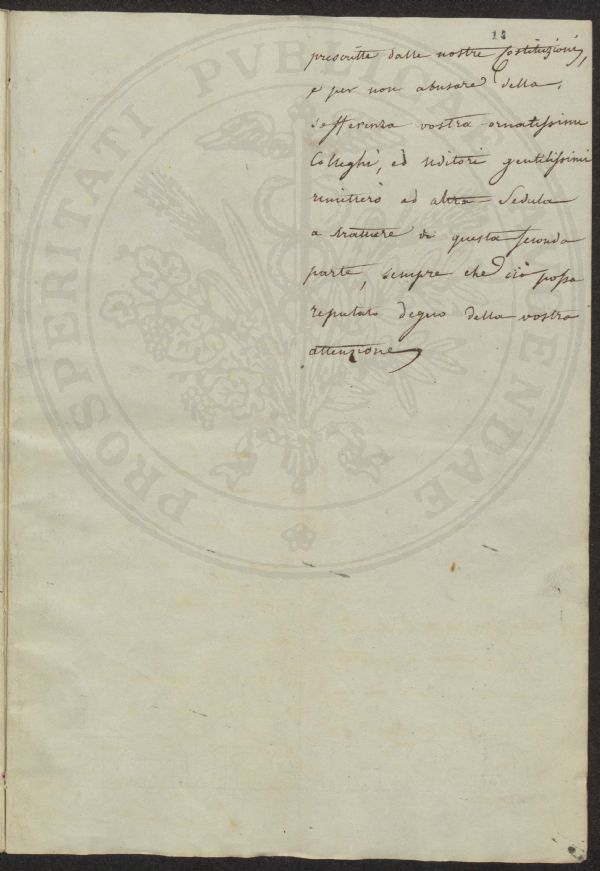 15
prescritte dalle nostre Costituzioni,
e per non abusare della
sofferenza vostra ornatissimi
Colleghi, ed Uditori gentilissimi
rimitterò ad altra Seduta
a trattare di questa seconda
parte, sempre che ciò possa
reputato degno della vostra
attenzione
PROSPERITATI PVBLICAE AVGENDAE